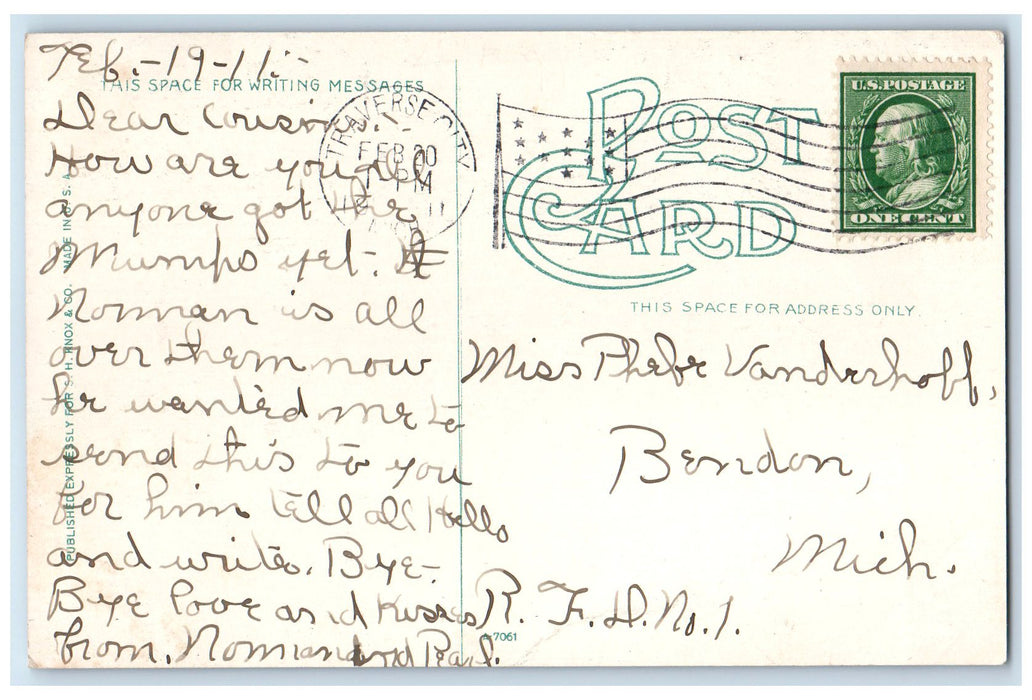 Feb.-19-11.-
THIS SPACE FOR WRITING MESSAGES
Dear Cousin:-
How are you all
anyone got the
Mumps yet.
Norman is all
over them now
he wanted me to
send this to you
for him tell all Hello
and write. Bye-
Bye love and Kisses
from. Norman and Pearl.
PUBLISHED EXPRESSLY FOR S. H. KNOX & CO. MADE IN U. S. A.
TRAVERSE CITY
FEB 20
PM
11
POST CARD
U.S. POSTAGE
ONE CENT
THIS SPACE FOR ADDRESS ONLY.
Miss Phebe Vanderhoff,
Bendon,
Mich.
R. F. D. No. 1.
A-7061